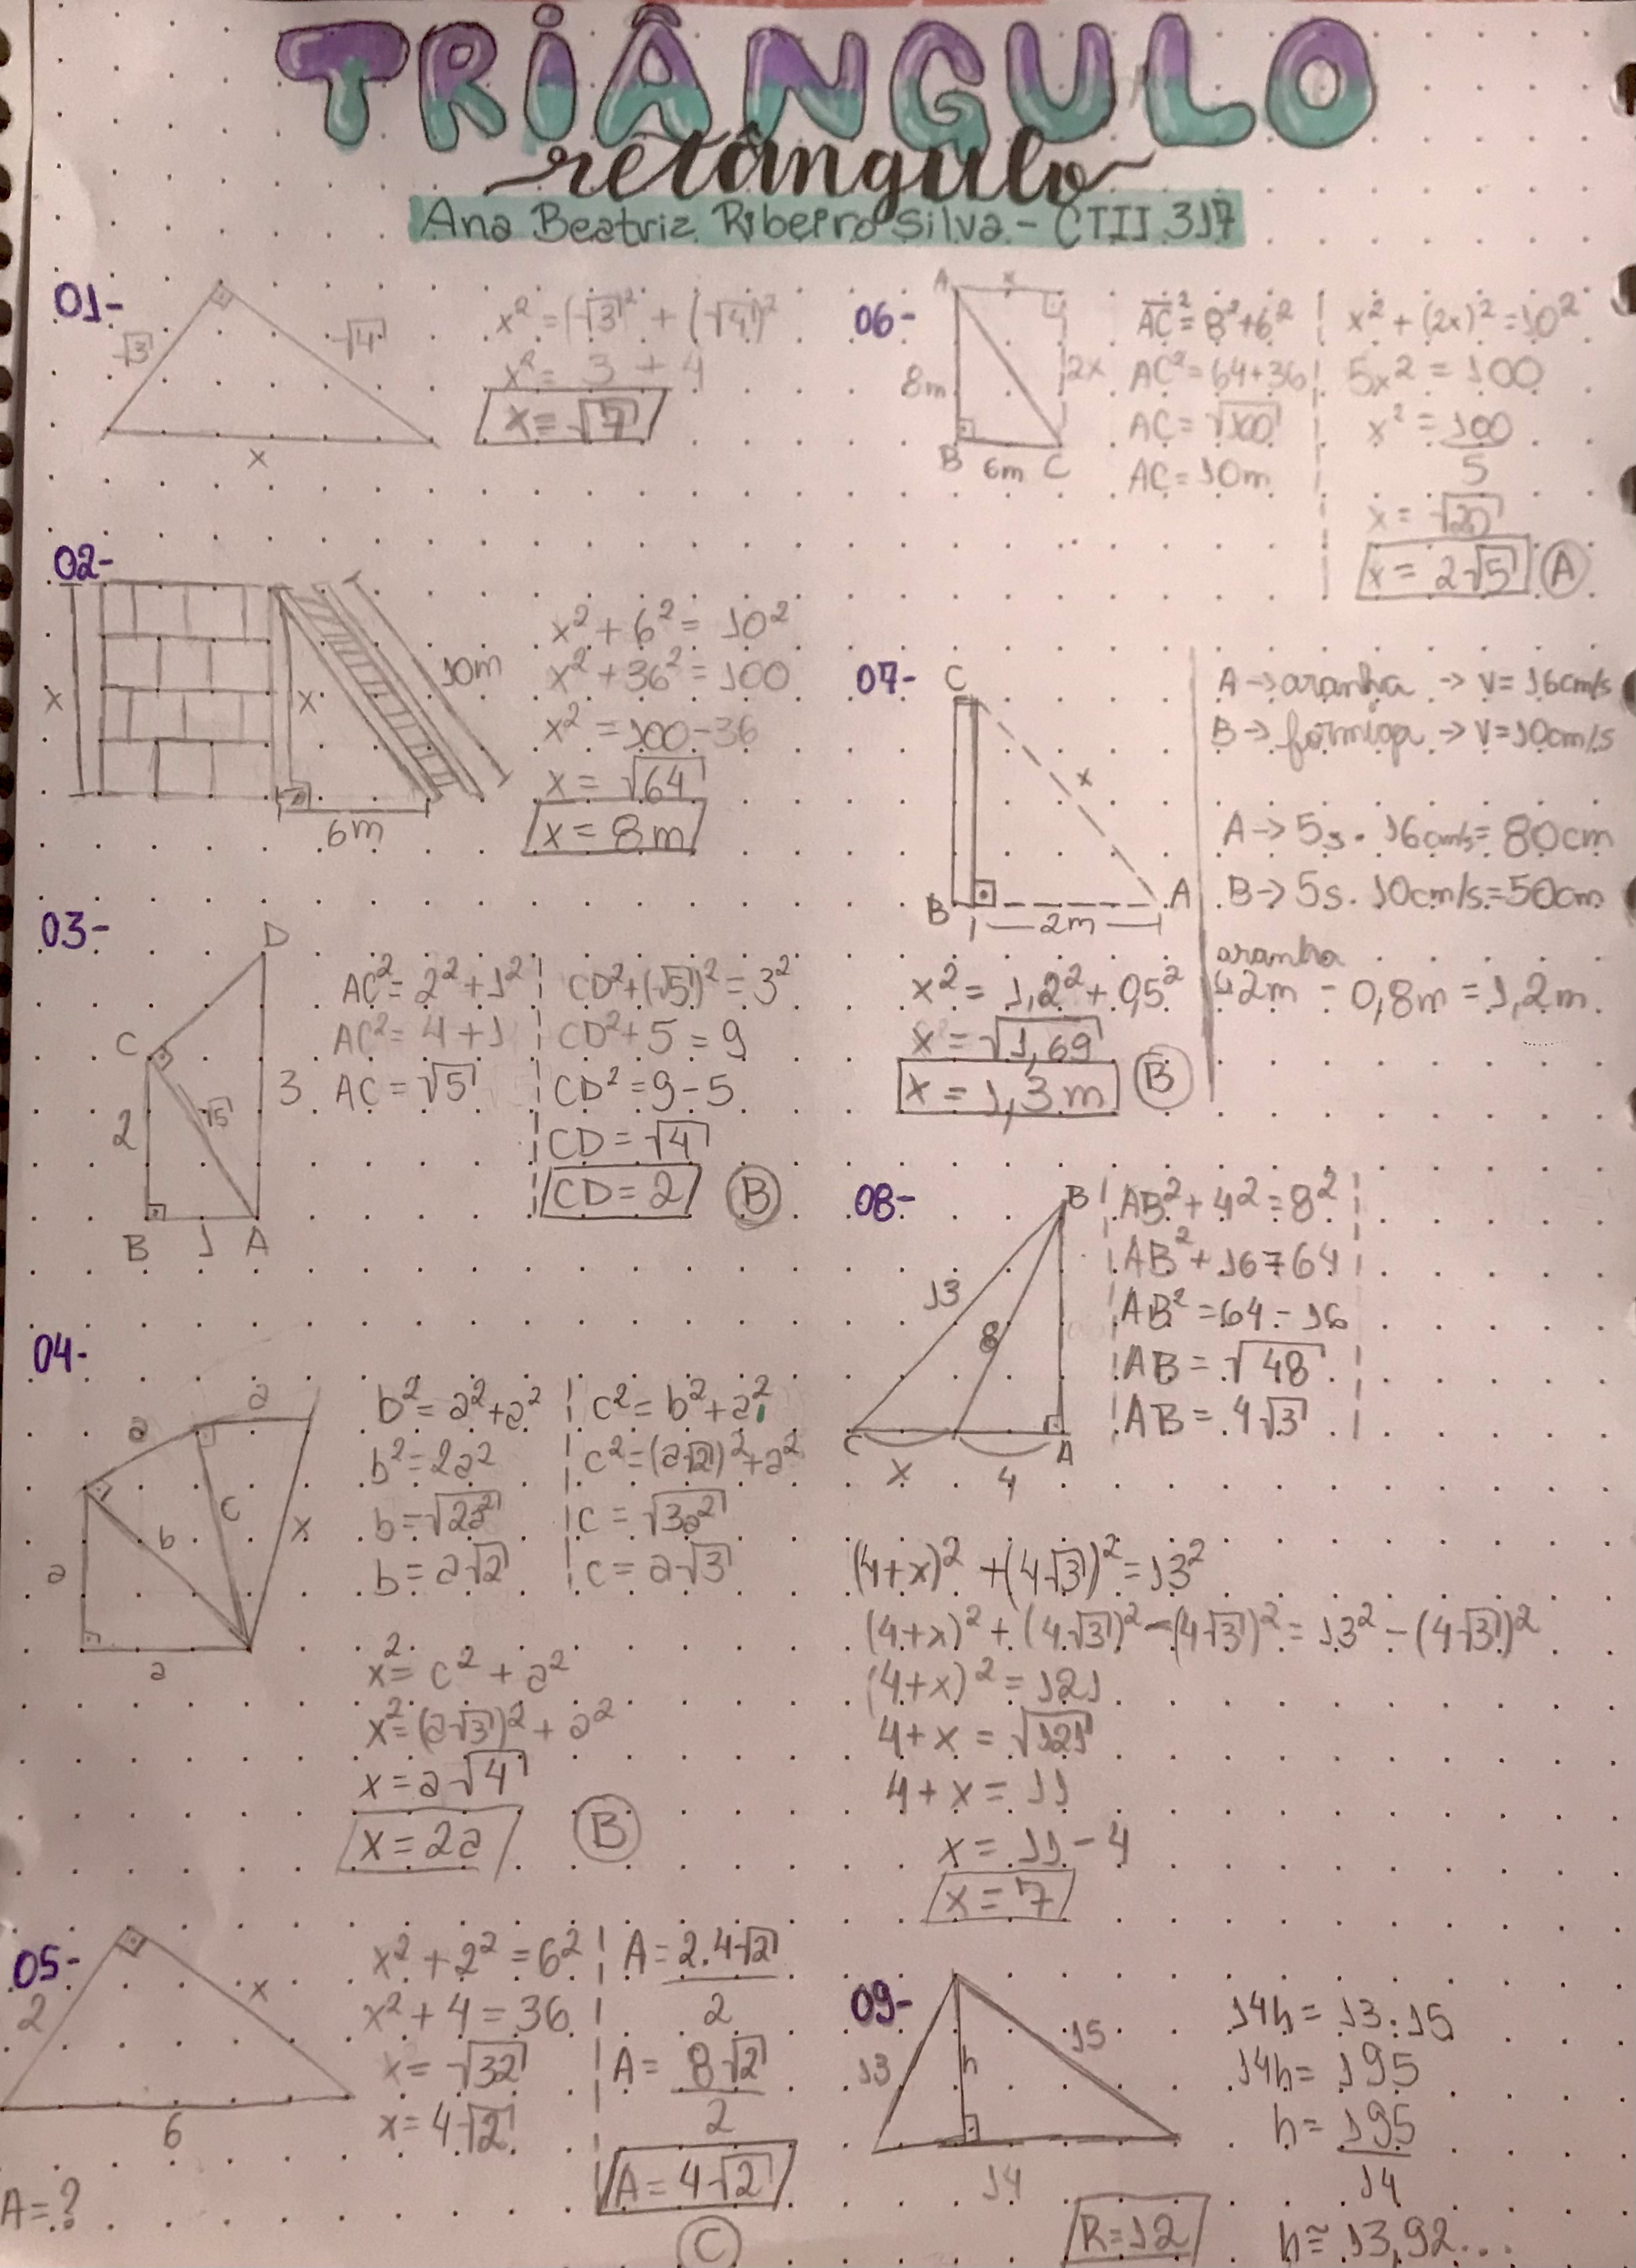 TRIÂNGULO
retângulo
Ana Beatriz Ribeiro Silva - CTII 317
01-
√3
√4
x
x² = (√3)² + (√4)²
x² = 3 + 4
x = √7
02-
x
x
10m
6m
x² + 6² = 10²
x² + 36² = 100
x² = 100 - 36
x = √64
x = 8m
03-
D
C
3
2
√5
B 1 A
AC² = 2² + 1²
AC² = 4 + 1
AC = √5
CD² + (√5)² = 3²
CD² + 5 = 9
CD² = 9 - 5
CD = √4
CD = 2
B
04-
a
a
c
b
x
a
a
b² = a² + a²
b² = 2a²
b = √2a²
b = a√2
c² = b² + a²
c² = (a√2)² + a²
c = √3a²
c = a√3
x² = c² + a²
x² = (a√3)² + a²
x = a√4
x = 2a
B
05-
2
x
6
A = ?
x² + 2² = 6²
x² + 4 = 36
x = √32
x = 4√2
A = 2.4√2
2
A = 8√2
2
A = 4√2
C
06-
A
x
8m
2x
B 6m C
AC² = 8² + 6²
AC² = 64 + 36
AC = √100
AC = 10m
x² + (2x)² = 10²
5x² = 100
x² = 100
5
x = √20
x = 2√5
A
07-
C
x
B
A
2m
A → aranha → v = 16cm/s
B → formiga → v = 10cm/s
A → 5s . 16cm/s = 80cm
B → 5s . 10cm/s = 50cm
aranha
↳ 2m - 0,8m = 1,2m
x² = 1,2² + 0,5²
x² = √1,69
x = 1,3m
B
08-
B
13
8
C
A
x
4
AB² + 4² = 8²
AB² + 16 7 64
AB² = 64 - 16
AB = √48
AB = 4√3
(4+x)² + (4√3)² = 13²
(4+x)² + (4√3)² - (4√3)² = 13² - (4√3)²
(4+x)² = 121
4 + x = √121
4 + x = 11
x = 11 - 4
x = 7
09-
13
h
15
14
14h = 13.15
14h = 195
h = 195
14
h ≅ 13,92...
R = 12